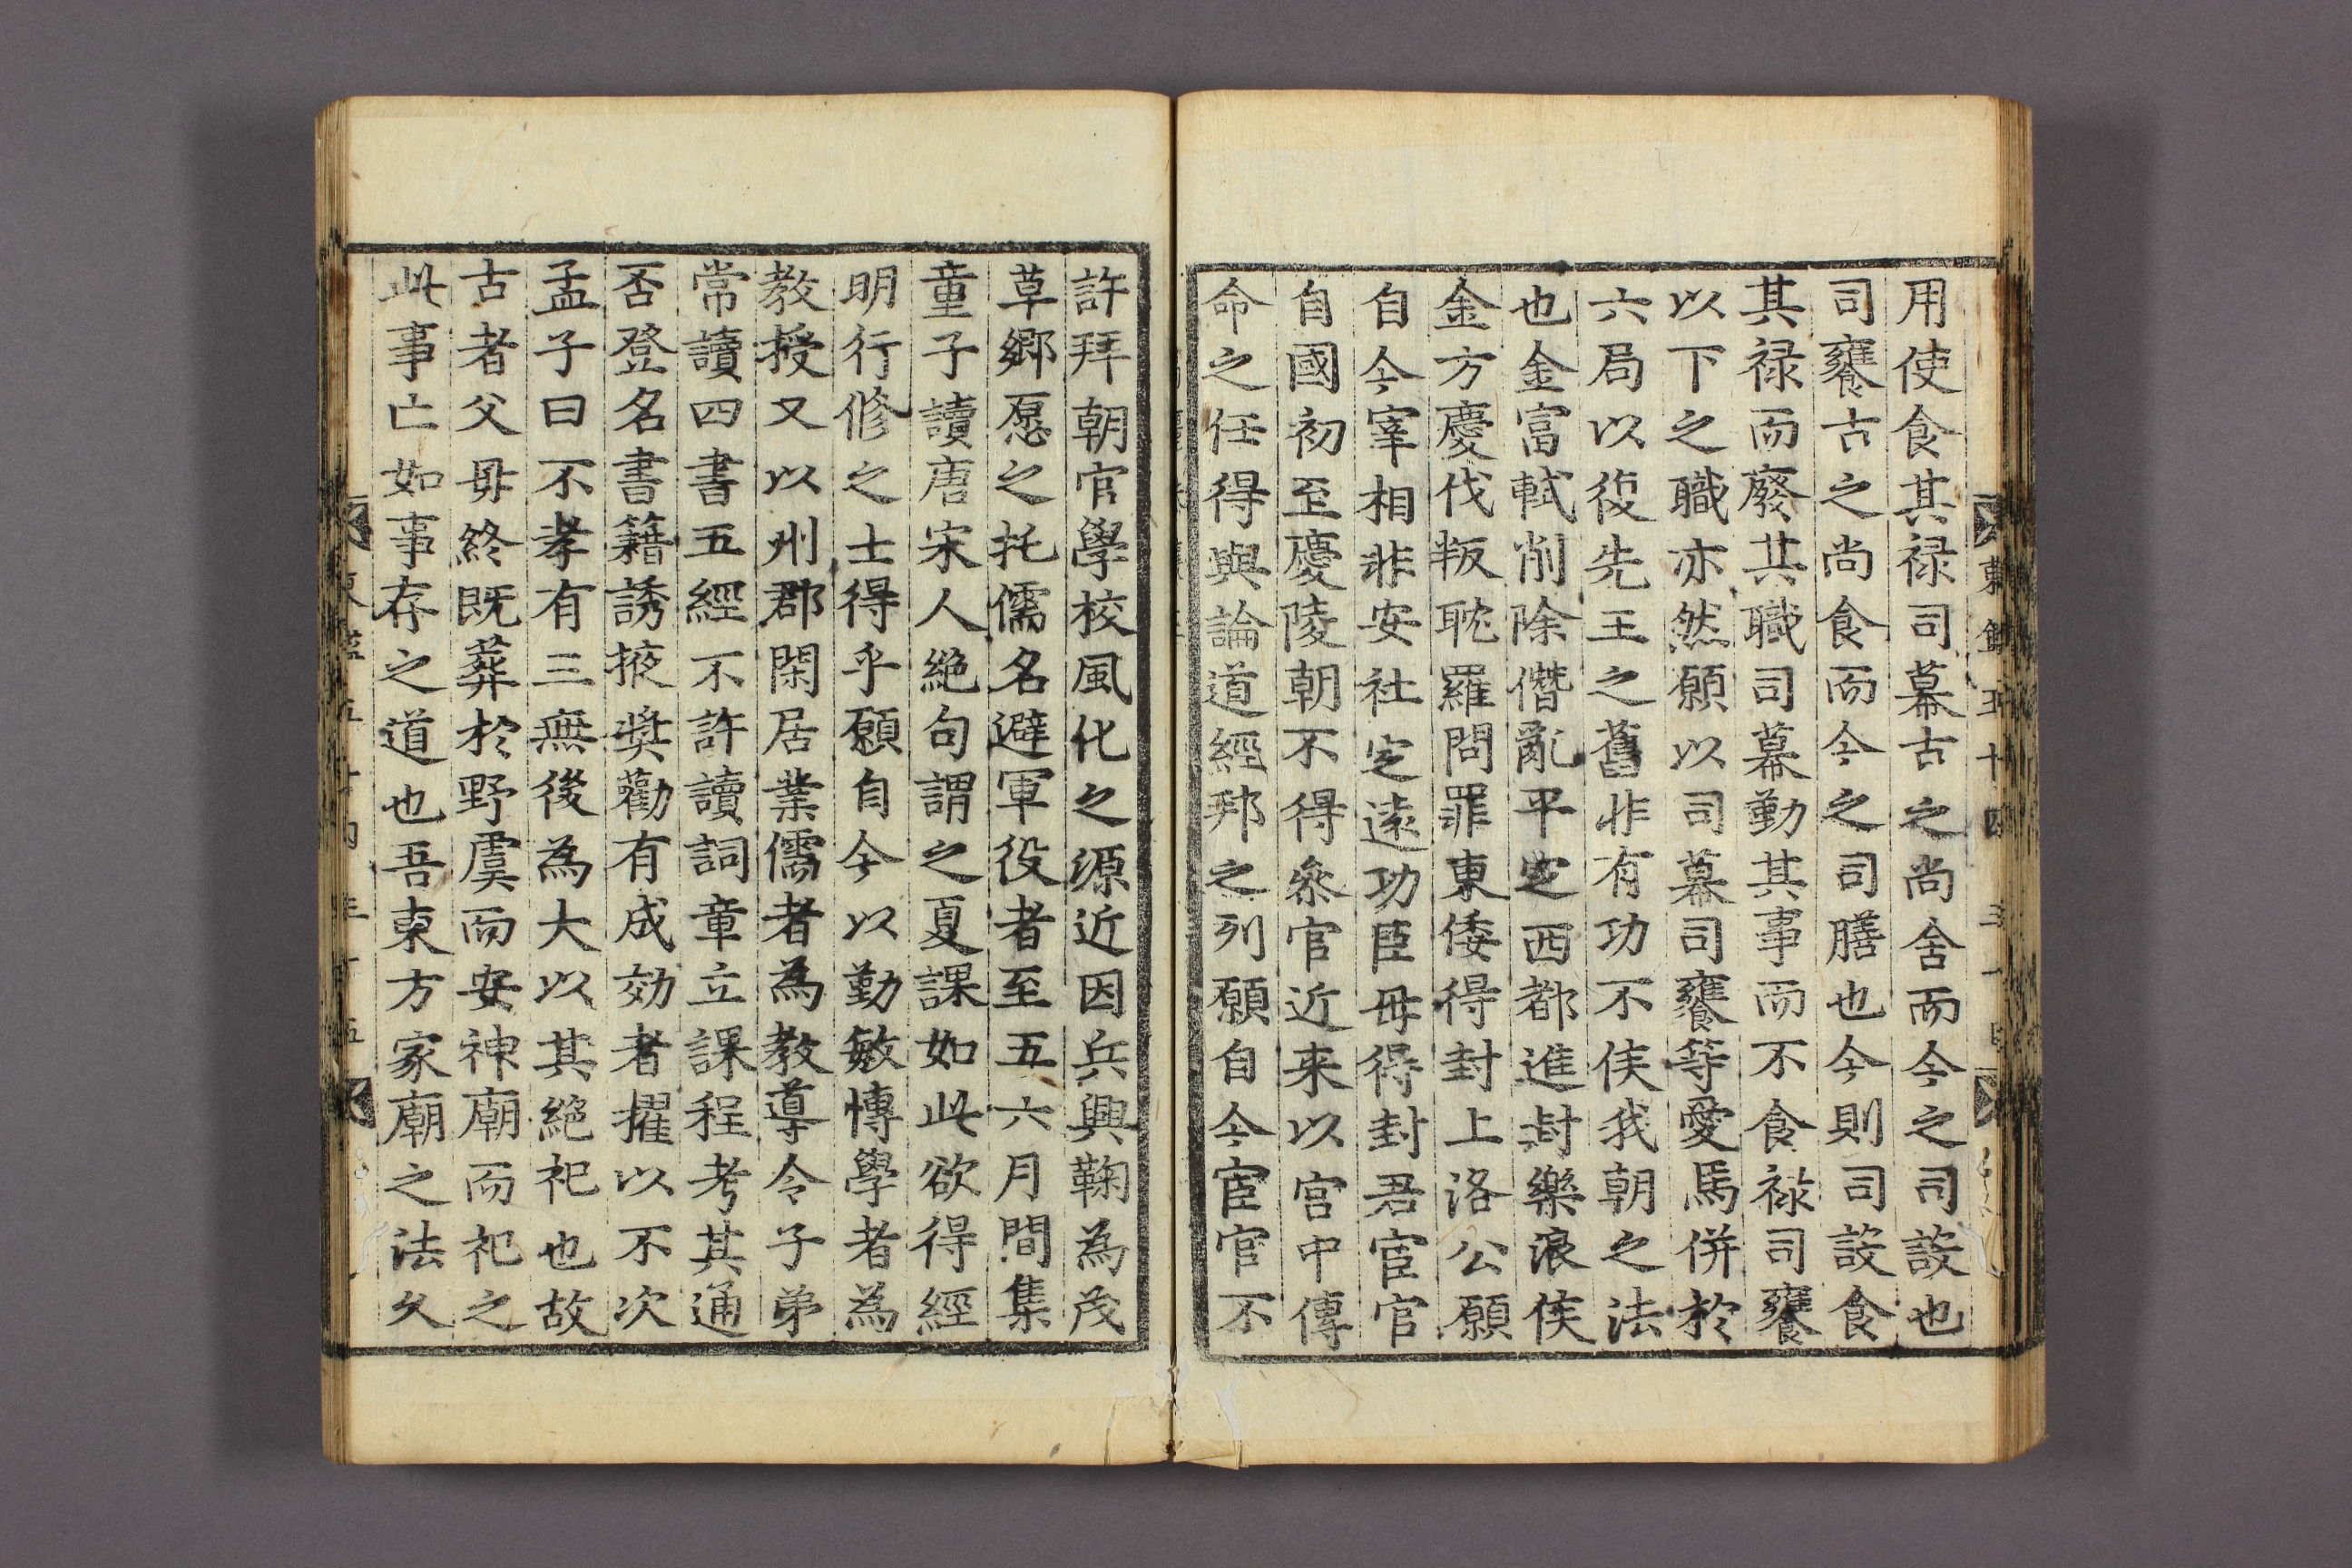 用使食其祿司幕古之尚舍而今之司設也
司饔古之尚食而今之司膳也今則司設食
其祿而廢其職司幕勤其事而不食祿司饔
以下之職亦然願以司幕司饔等愛馬併於
六局以復先王之舊非有功不侯我朝之法
也金富軾削除僭亂平定西都進封樂浪侯
金方慶伐叛耽羅問罪東倭得封上洛公願
自今宰相非安社定遠功臣毋得封君宦官
自國初至慶陵朝不得叅官近来以宮中傳
命之任得與論道經邦之列願自今宦官不
許拜朝官學校風化之源近因兵興鞠為茂
草鄉愿之托儒名避軍役者至五六月間集
童子讀唐宋人絶句謂之夏課如此欲得經
明行修之士得乎願自今以勤敏博學者為
教授又以州郡閑居業儒者為教導令子弟
常讀四書五經不許讀詞章立課程考其通
否登名書籍誘掖獎勸有成効者擢以不次
孟子曰不孝有三無後為大以其絶祀也故
古者父毋終既葬於野虞而安神廟而祀之
此事亡如事存之道也吾東方家廟之法久